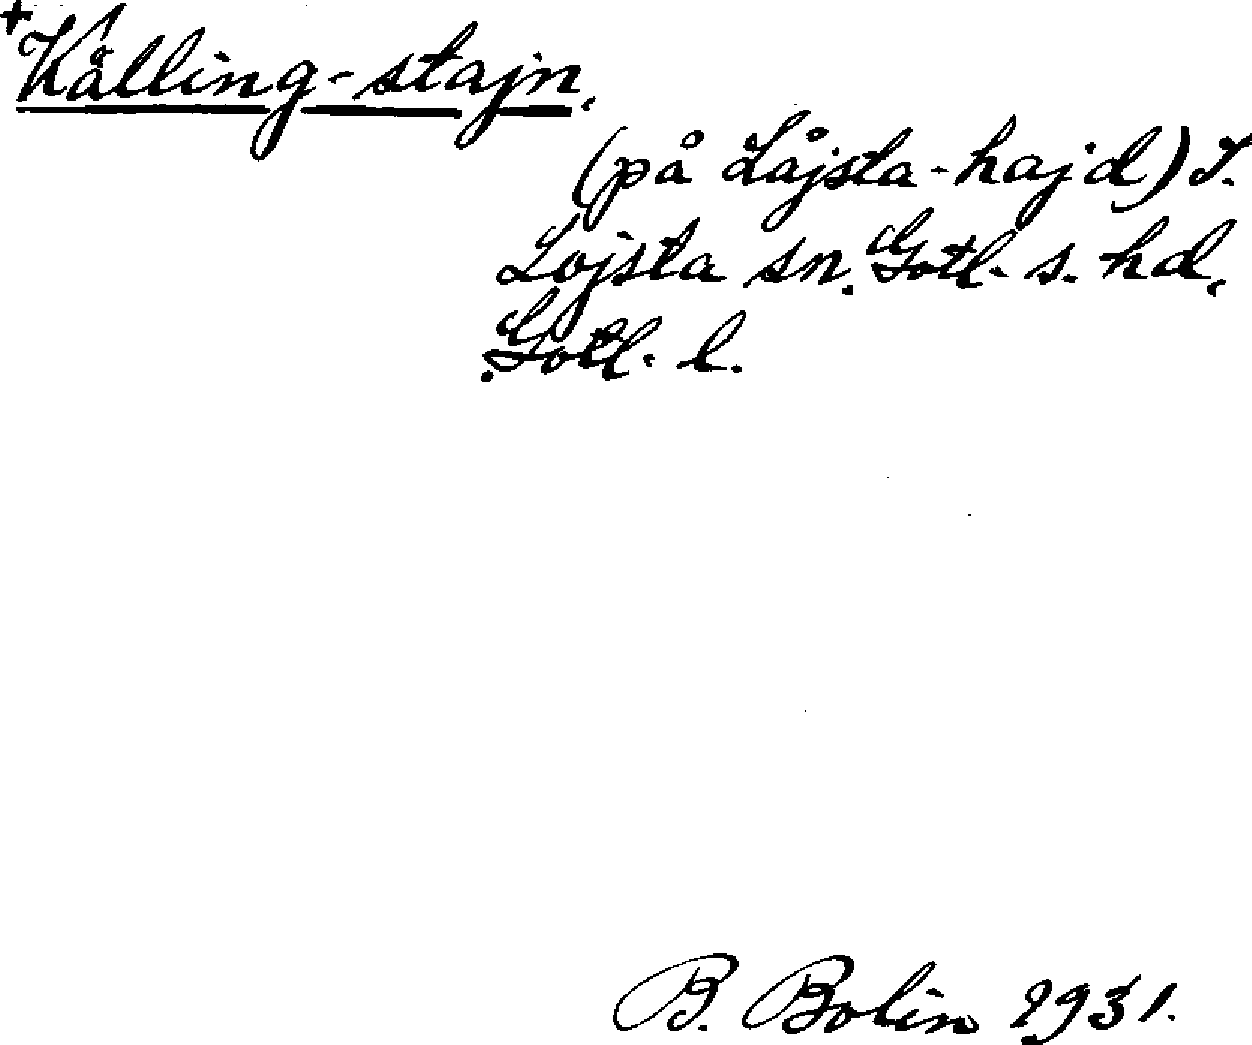 +Kålling-stajn.
(på Låjsta-hajd) I.
Lojsta sn. Gotl. s. hd,
Gotl. l.
B. Bolin 1931.